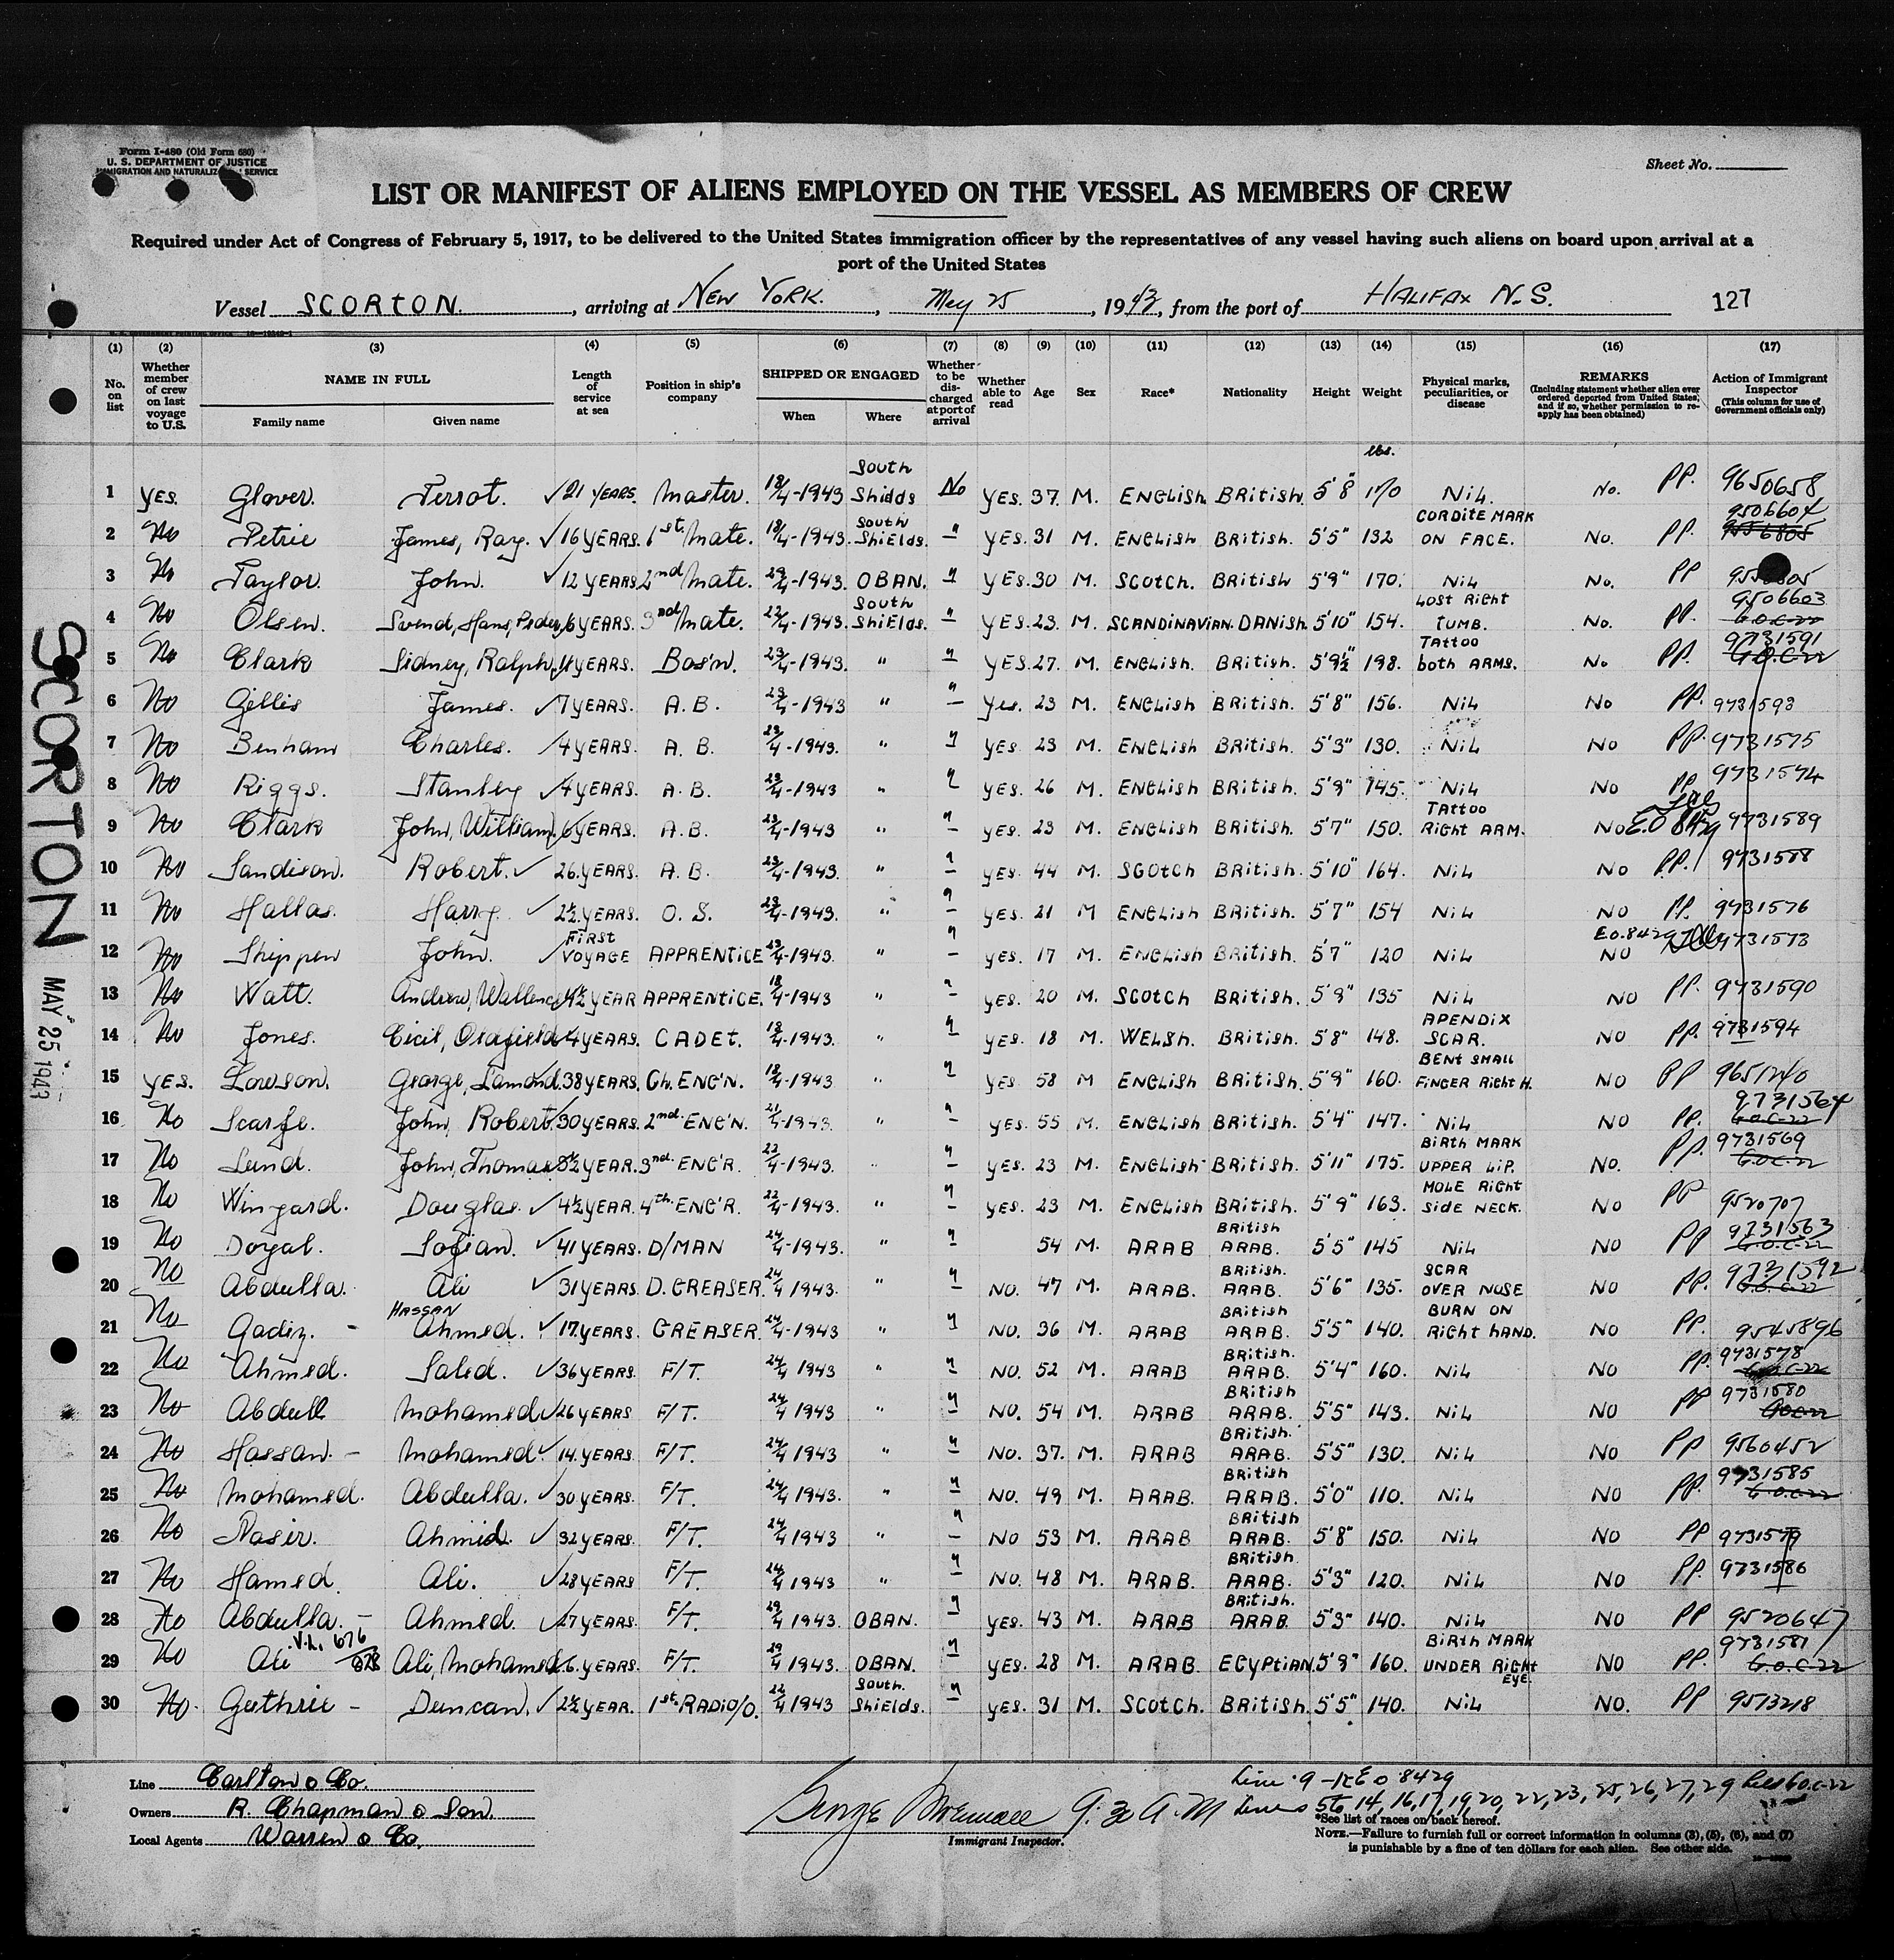 Form I-480 (Old Form 680)
U. S. DEPARTMENT OF JUSTICE
IMMIGRATION AND NATURALIZ SERVICE
Sheet No.
LIST OR MANIFEST OF ALIENS EMPLOYED ON THE VESSEL AS MEMBERS OF CREW
Required under Act of Congress of February 5, 1917, to be delivered to the United States immigration officer by the representatives of any vessel having such aliens on board upon arrival at a
port of the United States
Vessel SCORTON. , arriving at NEW YORK. , May 25 , 1943, from the port of HALIFAX N.S. 127
(1) (2) (3) (4) (5) (6) (7) (8) (9) (10) (11) (12) (13) (14) (15) (16) (17)
No. on list
Whether member of crew on last voyage to U.S.
NAME IN FULL
Family name Given name
Length of service at sea
Position in ship's company
SHIPPED OR ENGAGED
When Where
Whether to be discharged at port of arrival
Whether able to read
Age Sex Race* Nationality Height Weight
Physical marks, peculiarities, or disease
REMARKS
(Including statement whether alien ever ordered deported from United States, and if so, whether permission to reapply has been obtained)
Action of Immigrant Inspector
(This column for use of Government officials only)
lbs.
1 YES. Glover. Terrot. ✓ 21 YEARS. Master. 18/4-1943 South Shields No YES. 37. M. ENGLISH BRITISH. 5'8" 170 NIL. No. PP. 9650658
2 No Petrie James, Ray. ✓ 16 YEARS. 1st Mate. 18/4-1943. South Shields. " YES. 31 M. ENGLISH BRITISH. 5'5" 132 CORDITE MARK ON FACE. No. PP. 9506604
3 No Taylor. John. ✓ 12 YEARS 2nd Mate. 29/4-1943. OBAN. " YES. 30 M. SCOTCH. BRITISH 5'9" 170. NIL No. PP
4 No Olsen. Svend, Hans, Peder, 6 YEARS. 3nd Mate. 22/4-1943. South Shields. " YES. 23. M. SCANDINAVIAN. DANISH. 5'10" 154. LOST RIGHT TUMB. No. PP. 9506603 G.O.C-22
5 No Clark Sidney, Ralph, YEARS. Bos'n. 23/4-1943. " " YES. 27. M. ENGLISH. BRITISH. 5'9½" 198. TATTOO both ARMS. No PP. 9731591 G.O.C-22
6 No Gillis James. ✓ 7 YEARS. A.B. 23/4-1943 " " Yes. 23 M. ENGLISH BRITISH. 5'8" 156. NIL No PP. 9731593
7 No Benham Charles. ✓ 4 YEARS. A.B. 23/4-1943. " " YES. 23 M. ENGLISH BRITISH. 5'3" 130. NIL NO PP. 9731575
8 No Riggs. Stanley ✓ 4 YEARS. A.B. 23/4-1943 " " YES. 26 M. ENGLISH BRITISH. 5'9" 145. NIL NO PP 9731574
9 No Clark John, William. 6 YEARS. A.B. 23/4-1943 " " YES. 23 M. ENGLISH BRITISH. 5'7" 150. TATTOO RIGHT ARM. NO E.O 8429 9731589
10 No Sandison. Robert. ✓ 26. YEARS. A.B. 23/4-1943. " " YES. 44 M. SCOTCH BRITISH. 5'10" 164. NIL NO PP. 9731588
11 No Hallas. Harry. ✓ 2½ YEARS. O.S. 23/4-1943. " " YES. 21 M ENGLISH BRITISH. 5'7" 154 NIL NO PP. 9731576
12 No Shippen John. ✓ FIRST VOYAGE APPRENTICE 23/4-1943. " " YES. 17 M. ENGLISH BRITISH. 5'7" 120 NIL NO E.O.8429 9731573
13 No Watt. Andrew, Wallence ½ YEAR APPRENTICE. 18/4-1943 " " YES. 20 M. SCOTCH BRITISH. 5'9" 135 NIL NO PP. 9731590
14 No Jones. Cicil, Oldfield ✓ 4 YEARS. CADET. 18/4-1943. " " YES. 18 M. WELSH. BRITISH. 5'8" 148. APENDIX SCAR. NO PP. 9731594
15 YES. Lowson. George, Lamond. 38 YEARS. Ch. ENG'N. 18/4-1943 " " YES 58 M ENGLISH BRITISH. 5'9" 160. BENT SMALL FINGER RIGHT H. NO PP 9651240
16 No Scarfe. John, Robert. 30 YEARS 2nd. ENG'N. 21/4-1943. " YES. 55 M. ENGLISH BRITISH. 5'4" 147. NIL NO PP. 9731564 G.O.C-22
17 No Lund. John, Thomas ½ YEAR. 3nd. ENG'R. 22/4-1943. " " YES. 23 M. ENGLISH BRITISH. 5'11" 175. BIRTH MARK UPPER LIP. NO. PP. 9731569 G.O.C-22
18 No Wingard. Douglas. ✓ 4½ YEAR. 4th. ENG'R. 22/4-1943. " " YES. 23 M. ENGLISH BRITISH. 5'9" 163. MOLE RIGHT SIDE NECK. NO PP 9520707
19 No Doyal. Sofian. ✓ 41 YEARS. D/MAN 24/4-1943. " " 54 M. ARAB BRITISH ARAB. 5'5" 145 NIL NO PP 9731563 G.O.C-22
20 No Abdulla. Ali ✓ 31 YEARS D. GREASER. 24/4 1943. " " NO. 47 M. ARAB. BRITISH. ARAB. 5'6" 135. SCAR OVER NOSE NO PP. 9731592 G.O.C-22
21 No Gadiz. - HASSAN Ahmed. ✓ 17. YEARS. GREASER. 24/4-1943 " " NO. 36 M. ARAB BRITISH ARAB. 5'5" 140. BURN ON RIGHT HAND. NO PP. 9545896
22 No Ahmed. Saled. ✓ 36 YEARS. F/T. 24/4 1943 " " NO. 52 M. ARAB BRITISH. ARAB. 5'4" 160. NIL NO PP. 9731578
23 No Abdull Mohamed ✓ 26 YEARS F/T. 24/4 1943 " " NO. 54 M. ARAB BRITISH ARAB. 5'5" 143. NIL NO PP 9731580 G.O.C-22
24 No Hassan. - Mohamed ✓ 14. YEARS F/T. 24/4 1943 " " NO. 37. M. ARAB BRITISH. ARAB. 5'5" 130. NIL NO PP 9560452
25 No Mohamed. Abdulla. ✓ 30 YEARS. F/T. 24/4 1943. " " NO. 49 M. ARAB. BRITISH ARAB. 5'0" 110. NIL NO PP. 9731585 G.O.C-22
26 No Nasir. Ahmid. ✓ 32 YEARS. F/T. 24/4 1943 " " NO 53 M. ARAB BRITISH ARAB. 5'8" 150. NIL NO PP 9731579
27 No Hamed. Ali. ✓ 28 YEARS F/T. 24/4 1943 " " NO. 48 M. ARAB. BRITISH. ARAB. 5'3" 120. NIL NO PP. 9731586
28 No Abdulla. - Ahmed. ✓ 27 YEARS. F/T. 29/4 1943. OBAN. " YES. 43 M. ARAB BRITISH. ARAB 5'3" 140. NIL NO PP 9520647
29 No Ali V.L. 676 Ali, Mohamed. 6. YEARS. F/T. 29/4 1943. OBAN. " YES. 28 M. ARAB. EGYPTIAN. 5'9" 160. BIRTH MARK UNDER RIGHT EYE. NO PP. 9731581 G.O.C-22
30 No. Guthrie - Duncan. ✓ 2½ YEAR. 1st. RADIO/O. 22/4 1943 South. Shields. " YES. 31 M. SCOTCH. BRITISH. 5'5" 140. NIL NO. PP 9513218
SCORTON MAY 25 1943
Line Carlton & Co.
Owners R. Chapman & Son.
Local Agents Warren & Co.
George 9:30 A.M
Immigrant Inspector.
Line 9 - E O 8429
Lines 5 to 14, 16, 17, 19, 20, 22, 23, 25, 26, 27, 29 G.O.C-22
*See list of races on back hereof.
NOTE.—Failure to furnish full or correct information in columns (3), (5), (6), and (7)
is punishable by a fine of ten dollars for each alien. See other side.